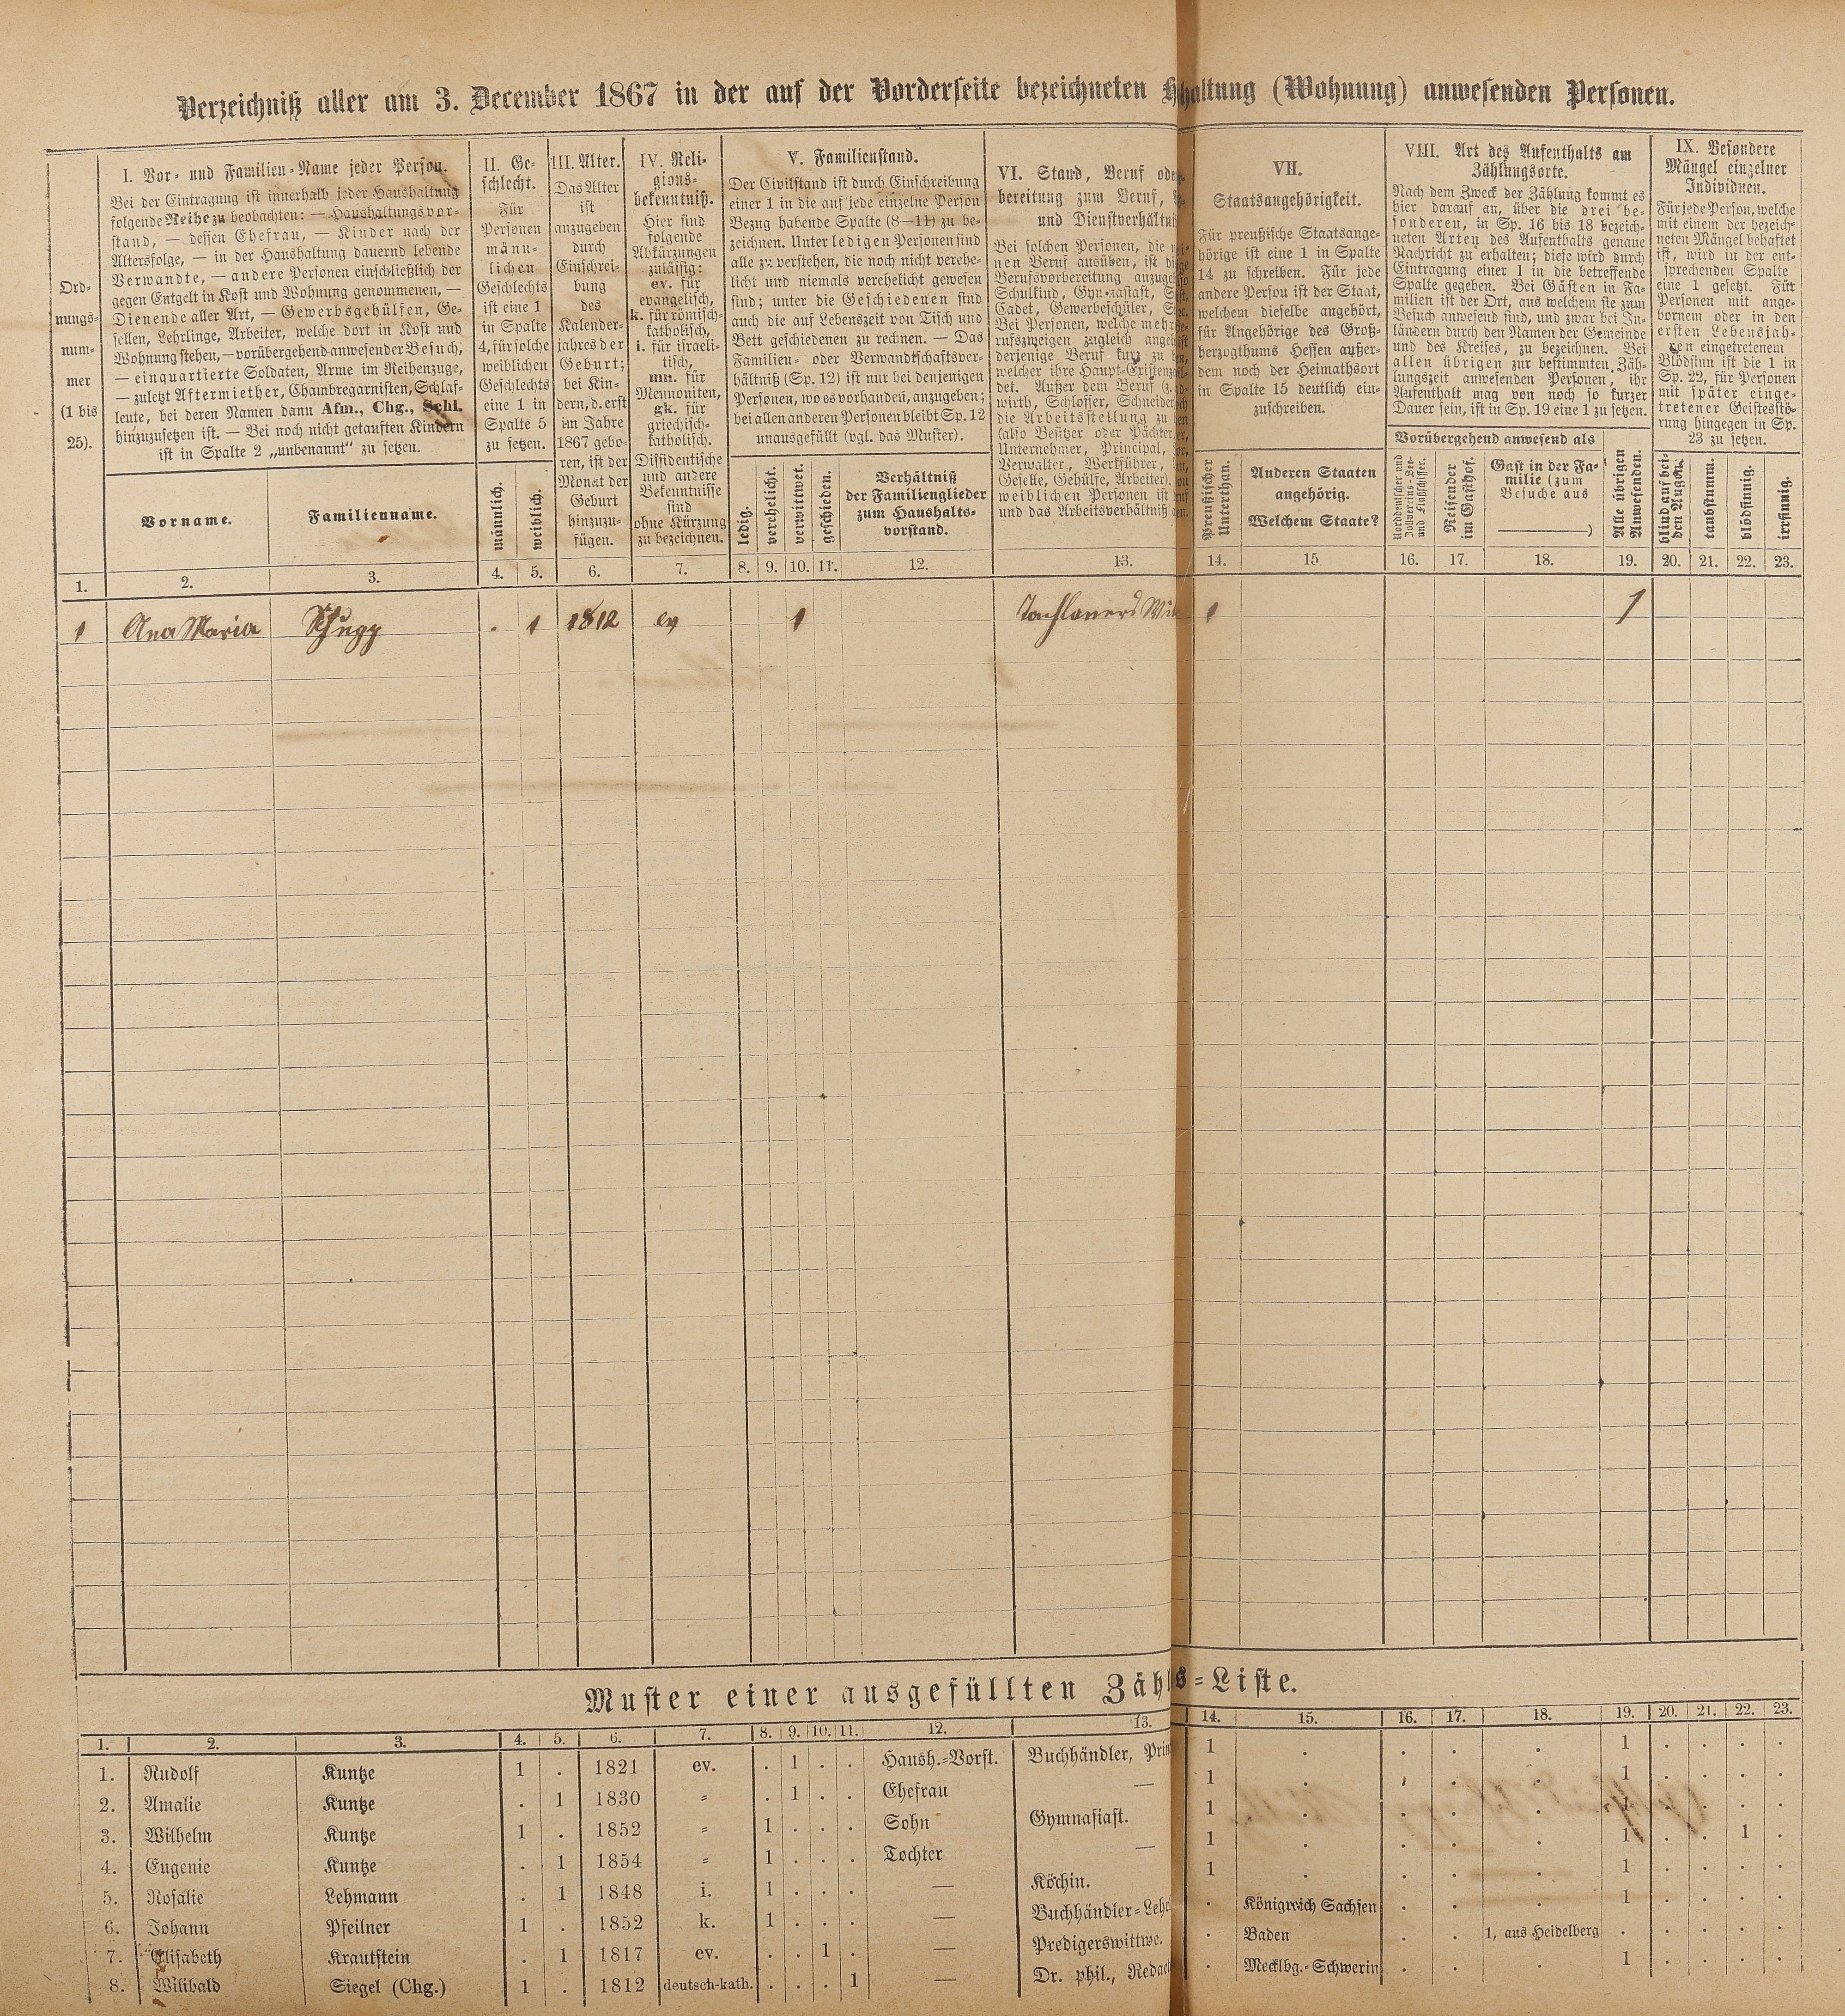 Verzeichniß aller am 3. December 1867 in der auf der Vorderseite bezeichneten haltung (Wohnung) anwesenden Personen.
Ord-
nungs-
num-
mer
(1 bis
25).
I. Vor- und Familien-Name jeder Person.
Bei der Eintragung ist innerhalb jeder Haushaltung
folgende Reihe zu beobachten: — Haushaltungsvor-
stand, — dessen Ehefrau, — Kinder nach der
Altersfolge, — in der Haushaltung dauernd lebende
Verwandte, — andere Personen einschließlich der
gegen Entgelt in Kost und Wohnung genommenen, —
Dienende aller Art, — Gewerbsgehülfen, Ge-
sellen, Lehrlinge, Arbeiter, welche dort in Kost und
Wohnung stehen, — vorübergehend anwesender Besuch,
— einquartierte Soldaten, Arme im Reihenzuge,
— zuletzt Aftermiether, Chambregarnisten, Schlaf-
leute, bei deren Namen dann Afm., Chg., Schl.
hinzuzusetzen ist. — Bei noch nicht getauften Kindern
ist in Spalte 2 „unbenannt“ zu setzen.
Vorname.
Familienname.
II. Ge-
schlecht.
Für
Personen
männ-
lichen
Geschlechts
ist eine 1
in Spalte
4, für solche
weiblichen
Geschlechts
eine 1 in
Spalte 5
zu setzen.
männlich.
weiblich.
III. Alter.
Das Alter
ist
anzugeben
durch
Einschrei-
bung
des
Kalender-
jahres der
Geburt;
bei Kin-
dern, d. erst
im Jahre
1867 gebo-
ren, ist der
Monat der
Geburt
hinzuzu-
fügen.
IV. Reli-
gions-
bekenntniß.
Hier sind
folgende
Abkürzungen
zulässig:
ev. für
evangelisch,
k. für römisch-
katholisch,
i. für israeli-
tisch,
mn. für
Mennoniten,
gk. für
griechisch-
katholisch.
Dissidentische
und andere
Bekenntnisse
sind
ohne Kürzung
zu bezeichnen.
V. Familienstand.
Der Civilstand ist durch Einschreibung
einer 1 in die auf jede einzelne Person
Bezug habende Spalte (8—11) zu be-
zeichnen. Unter ledigen Personen sind
alle zu verstehen, die noch nicht verehe-
licht und niemals verehelicht gewesen
sind; unter die Geschiedenen sind
auch die auf Lebenszeit von Tisch und
Bett geschiedenen zu rechnen. — Das
Familien- oder Verwandtschaftsver-
hältniß (Sp. 12) ist nur bei denjenigen
Personen, wo es vorhanden, anzugeben;
bei allen anderen Personen bleibt Sp. 12
unausgefüllt (vgl. das Muster).
ledig.
verehelicht.
verwittwet.
geschieden.
Verhältniß
der Familienglieder
zum Haushalts-
vorstand.
VI. Stand, Beruf ode
bereitung zum Beruf,
und Dienstverhältni
Bei solchen Personen, die
nen Beruf ausüben, ist d
Berufsvorbereitung anzuge
Schulkind, Gymnasiast, S
Cadet, Gewerbeschüler, S
Bei Personen, welche mehr
rufszweigen zugleich angeh
derjenige Beruf kurz zu
welcher ihre Haupt-Existenz
det. Außer dem Beruf (z.
wirth, Schlosser, Schneider
die Arbeitsstellung zu
(also Besitzer oder Pächter
Unternehmer, Principal,
Verwalter, Werkführer,
Geselle, Gehülfe, Arbeiter).
weiblichen Personen ist
und das Arbeitsverhältniß
VII.
Staatsangehörigkeit.
Für preußische Staatsange-
hörige ist eine 1 in Spalte
14 zu schreiben. Für jede
andere Person ist der Staat,
welchem dieselbe angehört,
für Angehörige des Groß-
herzogthums Hessen außer-
dem noch der Heimathsort
in Spalte 15 deutlich ein-
zuschreiben.
Preußischer
Unterthan.
Anderen Staaten
angehörig.
Welchem Staate?
VIII. Art des Aufenthalts am
Zählungsorte.
Nach dem Zweck der Zählung kommt es
hier darauf an, über die drei be-
sonderen, in Sp. 16 bis 18 bezeich-
neten Arten des Aufenthalts genaue
Nachricht zu erhalten; diese wird durch
Eintragung einer 1 in die betreffende
Spalte gegeben. Bei Gästen in Fa-
milien ist der Ort, aus welchem sie zum
Besuch anwesend sind, und zwar bei In-
ländern durch den Namen der Gemeinde
und des Kreises, zu bezeichnen. Bei
allen übrigen zur bestimmten Zäh-
lungszeit anwesenden Personen, ihr
Aufenthalt mag von noch so kurzer
Dauer sein, ist in Sp. 19 eine 1 zu setzen.
Vorübergehend anwesend als
Norddeutscher und
Zollvereins-See-
und Flußschiffer.
Reisender
im Gasthof.
Gast in der Fa-
milie (zum
Besuche aus
)
Alle übrigen
Anwesenden.
IX. Besondere
Mängel einzelner
Individuen.
Für jede Person, welche
mit einem der bezeich-
neten Mängel behaftet
ist, wird in der ent-
sprechenden Spalte
eine 1 gesetzt. Für
Personen mit ange-
bornem oder in den
ersten Lebensjah-
ren eingetretenem
Blödsinn ist die 1 in
Sp. 22, für Personen
mit später einge-
tretener Geistesstö-
rung hingegen in Sp.
23 zu setzen.
blind auf bei-
den Augen.
taubstumm.
blödsinnig.
irrsinnig.
1. 2. 3. 4. 5. 6. 7. 8. 9. 10. 11. 12. 13. 14. 15 16. 17. 18. 19. 20. 21. 22. 23.
1 Ana Maria Schugg . 1 1812 ev 1 1 1
Muster einer ausgefüllten Zähls-Liste.
1. 2. 3. 4. 5. 6. 7. 8. 9. 10. 11. 12. 13. 14. 15. 16. 17. 18. 19. 20. 21. 22. 23.
1. Rudolf Kuntze 1 . 1821 ev. . 1 . . Haush.-Vorst. Buchhändler, Prin 1 . . . . 1 . . . .
2. Amalie Kuntze . 1 1830 = . 1 . . Ehefrau — 1 . . . . 1 . . . .
3. Wilhelm Kuntze 1 . 1852 = 1 . . . Sohn Gymnasiast. 1 . . . . 1 . . . .
4. Eugenie Kuntze . 1 1854 = 1 . . . Tochter — 1 . . . . 1 . . 1 .
5. Rosalie Lehmann . 1 1848 i. 1 . . . — Köchin. 1 . . . . 1 . . . .
6. Johann Pfeilner 1 . 1852 k. 1 . . . — Buchhändler-Lehr . Königreich Sachsen . . . 1 . . . .
7. Elisabeth Krautstein . 1 1817 ev. . . 1 . — Predigerswittwe. . Baden . . 1, aus Heidelberg . . . . .
8. Wilibald Siegel (Chg.) 1 . 1812 deutsch-kath. . . . 1 — Dr. phil., Redact . Mecklbg.-Schwerin . . . 1 . . . .